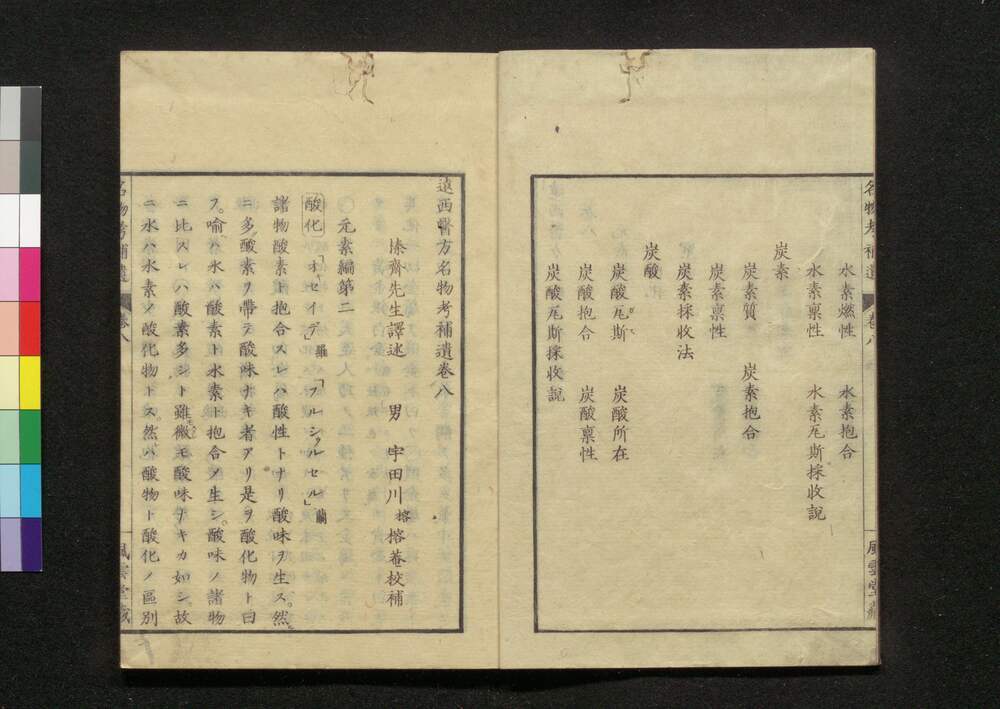 名物考補遺 卷八 風雲堂藏
水素燃性 水素抱合
水素禀性 水素瓦斯採收説
炭素
炭素質 炭素抱合
炭素禀性
炭素採收法
炭酸
炭酸瓦斯 炭酸所在
炭酸抱合 炭酸禀性
炭酸瓦斯採收説
遠西醫方名物考補遺卷八
榛齋先生譯述 男 宇田川榕 榕菴校補
元素編第二
酸化「オセイデ」羅「フルシュルセル」蘭
諸物酸素ト抱合スレハ酸性トナリ酸味ヲ生ス。然
ニ多酸素ヲ帶テ酸味ナキ者アリ是ヲ酸化物ト曰
フ。喩ハ氷ハ酸素ト水素ト抱合メ生シ。酸味ノ諸物
ニ比スレハ酸素多シト雖微モ酸味ナキカ如シ。故
ニ水ハ水素ノ酸化物トス然ハ酸物ト酸化ノ區別
名物考補遺 卷八 風雲堂藏